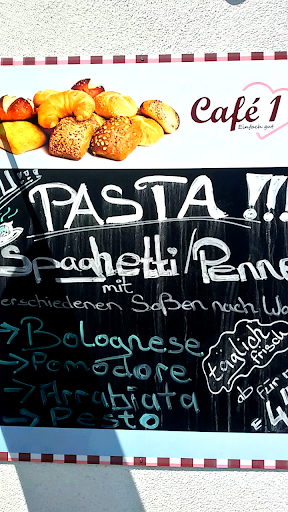 Café 1
Einfach gut
PASTA !!!
Spaghetti/Penne
mit
verschiedenen Soßen nach Wa
→Bolognese
→Pomodore
→Arrabiata
→Pesto
täglich
frisch
ab für
€ 4